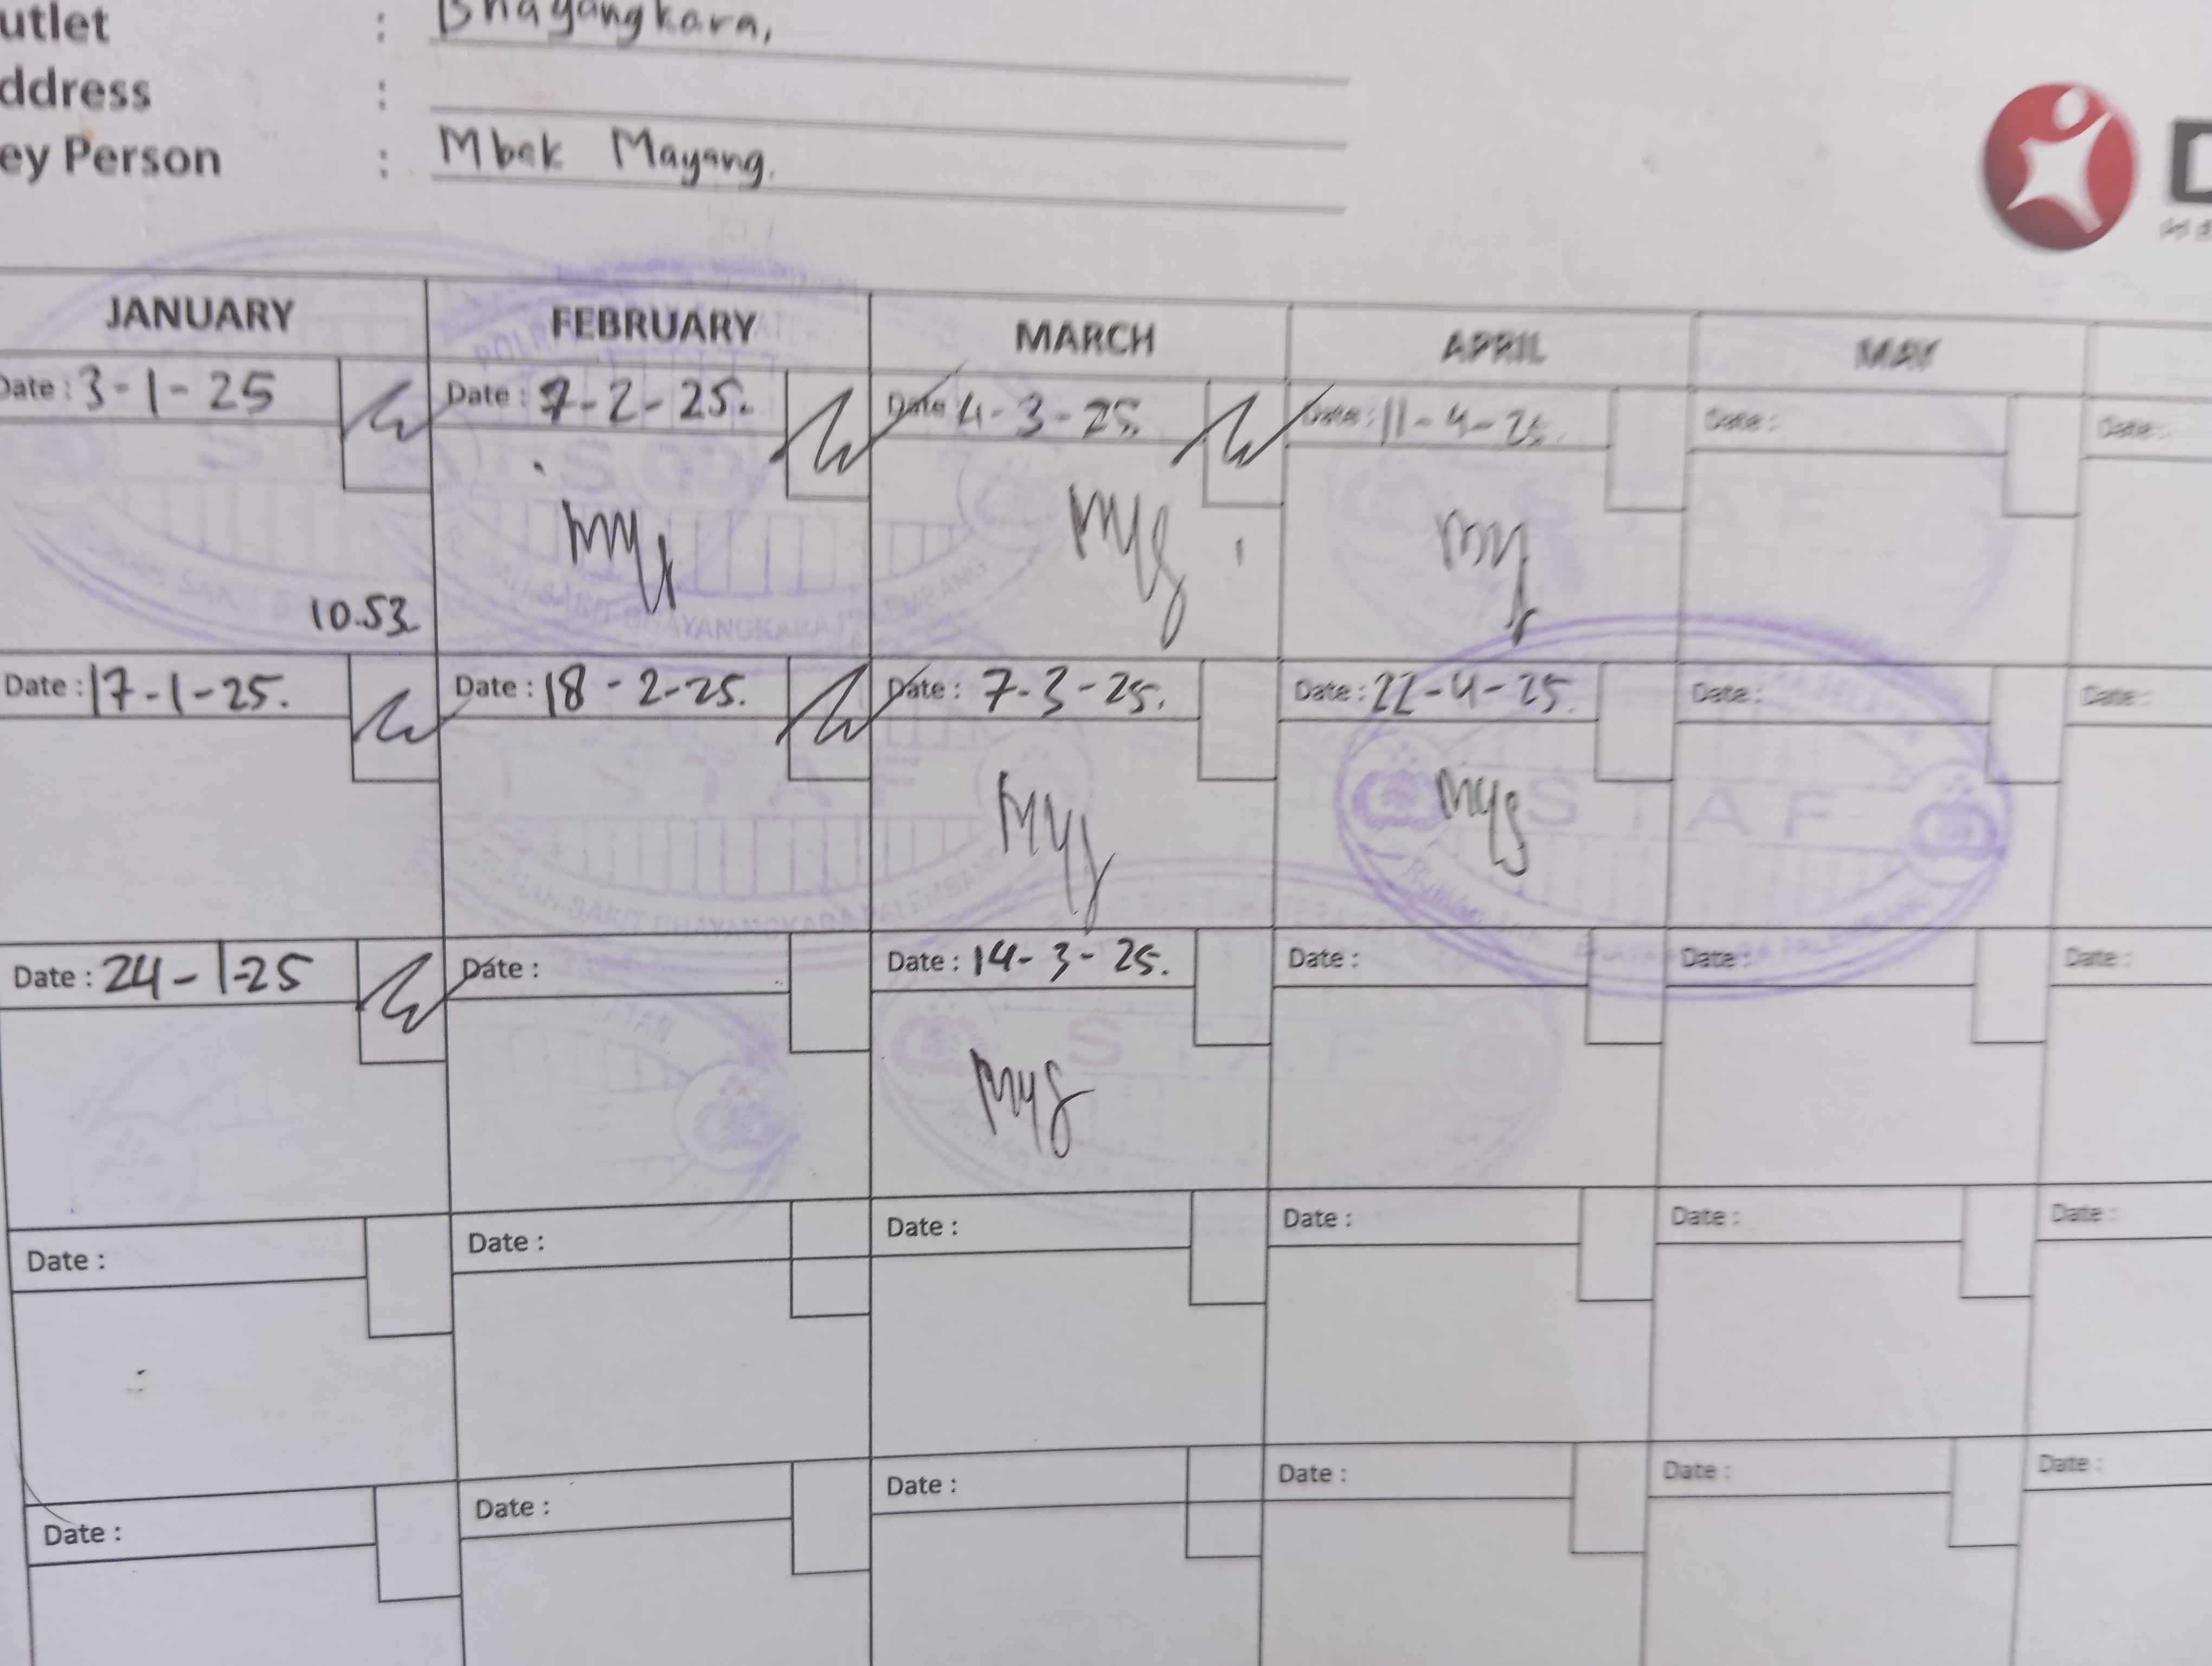 utlet : Bhayangkara,
ddress :
ey Person : Mbak Mayang.
JANUARY FEBRUARY MARCH APRIL MAY
Date : 3-1-25 Date : 7-2-25. Date 4-3-25. Date : 11-4-25. Date : Date :
10.53
Date : 17-1-25. Date : 18-2-25. Date : 7-3-25. Date : 22-4-25. Date : Date :
STAF
Date : 24-1-25 Date : Date : 14-3-25. Date : Date : Date :
STAF
Date : Date : Date : Date : Date : Date :
Date : Date : Date : Date : Date : Date :